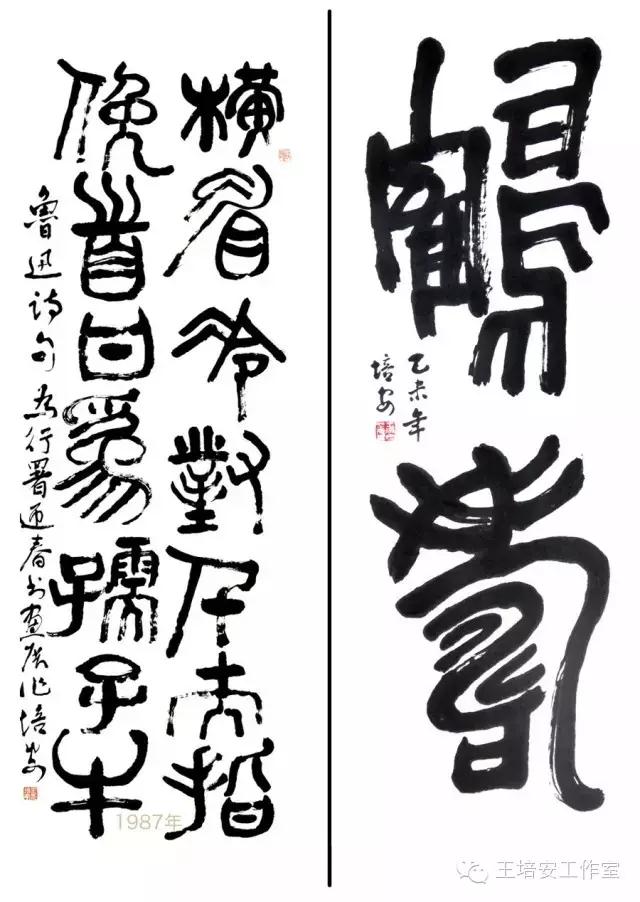 横眉冷對千夫指
俛首甘為孺子牛
魯迅詩句為行署迎春书画展作培安
1987年
鶴壽
乙未年
培安
王培安工作室